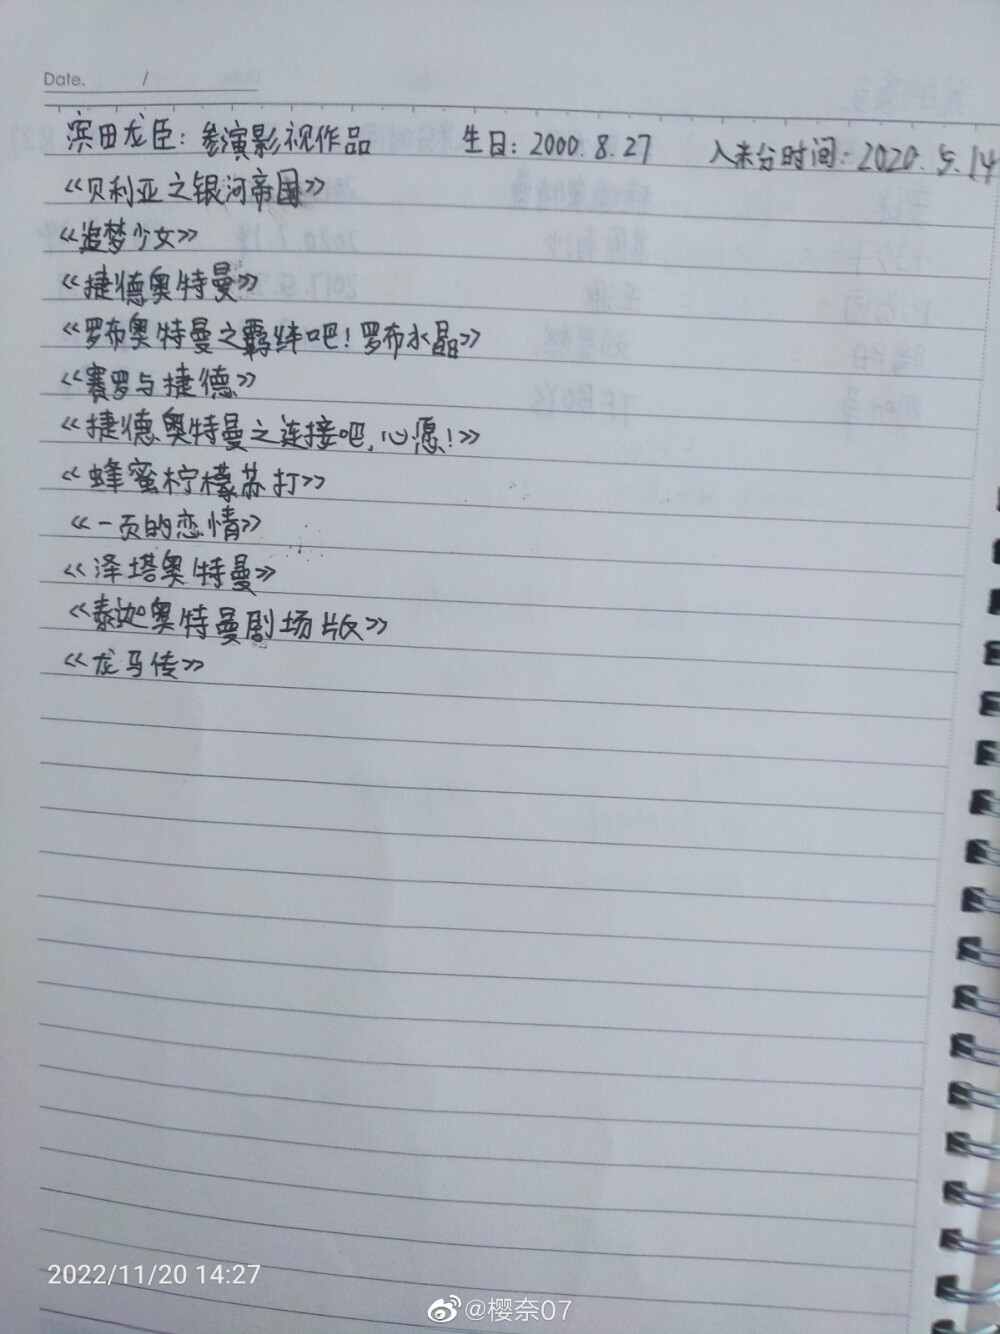 Date. /
滨田龙臣：参演影视作品 生日：2000.8.27 入米分时间：2020.5.14
《贝利亚之银河帝国》
《追梦少女》
《捷德奥特曼》
《罗布奥特曼之羁绊吧！罗布水晶》
《赛罗与捷德》
《捷德奥特曼之连接吧，心愿！》
《蜂蜜柠檬苏打》
《一页的恋情》
《泽塔奥特曼》
《泰迦奥特曼剧场版》
《龙马传》
2022/11/20 14:27
@樱奈07